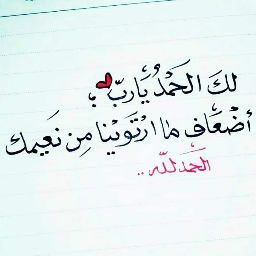 لكَ الحَمْدُ يَاربّ
أضْعَاف ما ارْتَويْنا مِن نَعيمك
الحَمدللّه ..